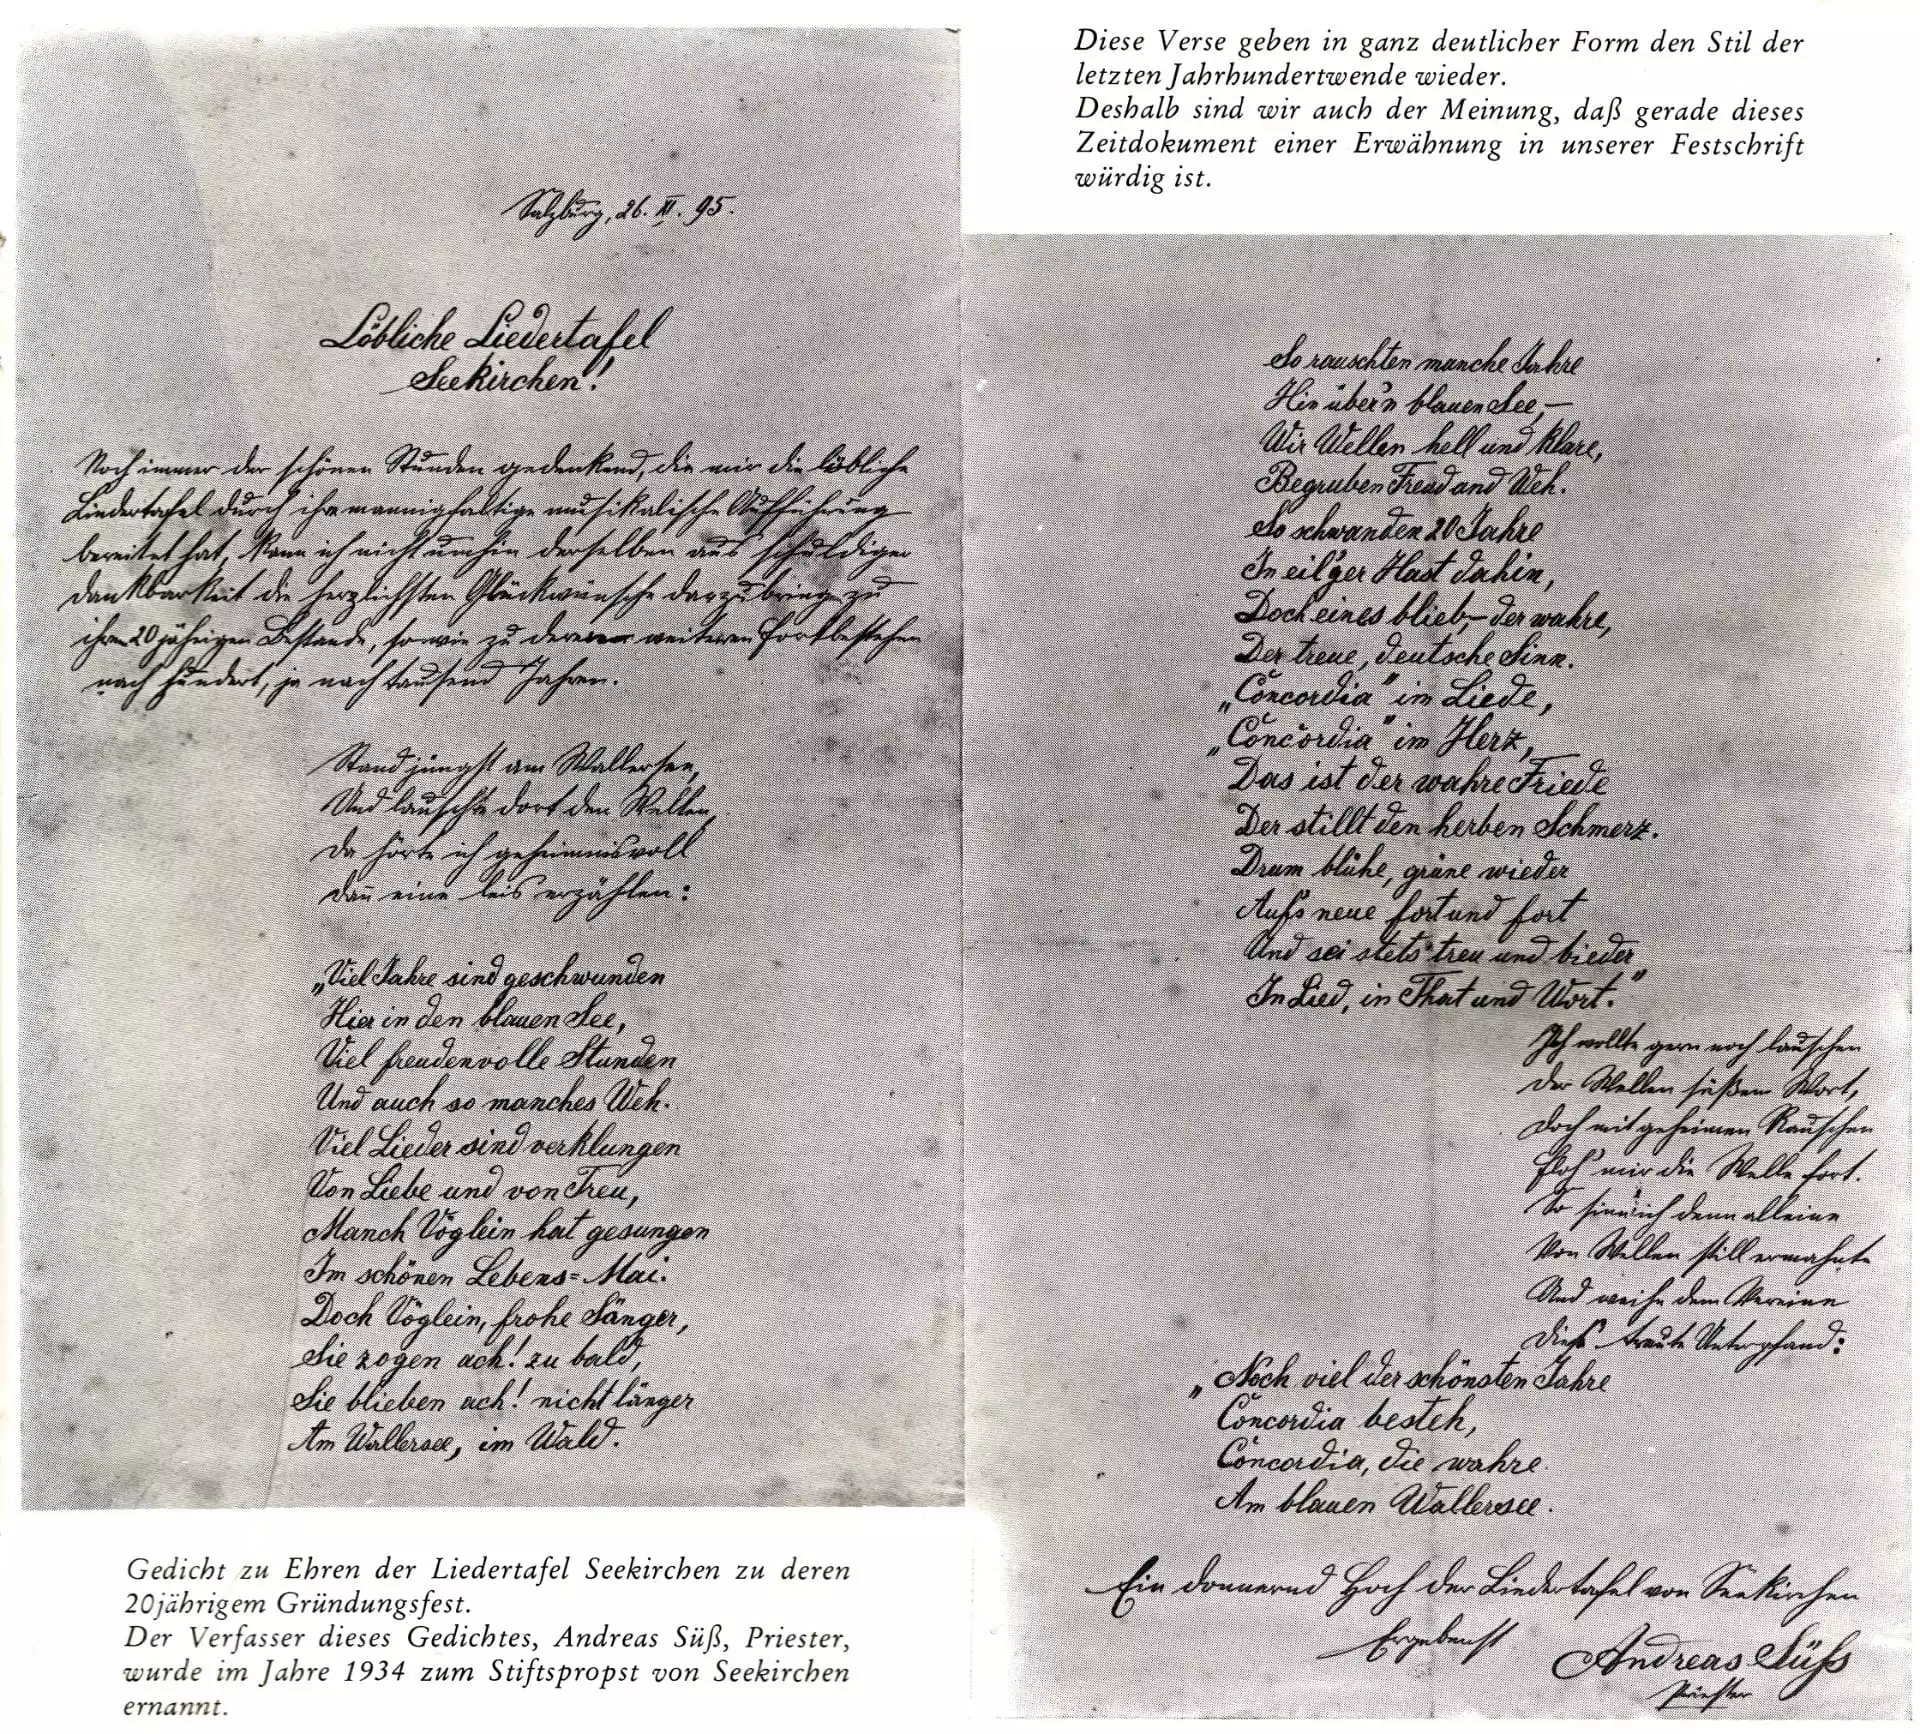 Salzburg, 26. XI. 95.
Löbliche Liedertafel
Seekirchen!
Noch immer der schönen Stunden gedenkend, die mir die löbliche
Liedertafel durch ihre mannigfaltige musikalische Aufführung
bereitet hat, kann ich nicht umhin derselben aus schuldiger
Dankbarkeit die herzlichsten Glückwünsche darzubringen zu
ihrem 20jährigen Bestande, sowie zu deren weiteren Fortbestehen
nach hundert, ja nach tausend Jahren.
Stand jüngst am Wallersee,
Und lauschte dort den Wellen,
Da hörte ich geheimnisvoll
Dañ eine leis erzählen:
„Viel Jahre sind geschwunden
Hier in den blauen See,
Viel freudenvolle Stunden
Und auch so manches Weh.
Viel Lieder sind verklungen
Von Liebe und von Treu,
Manch Vöglein hat gesungen
Im schönen Lebens=Mai.
Doch Vöglein, frohe Sänger,
Sie zogen ach! zu bald,
Sie blieben ach! nicht länger
Am Wallersee, im Wald.
Gedicht zu Ehren der Liedertafel Seekirchen zu deren
20jährigem Gründungsfest.
Der Verfasser dieses Gedichtes, Andreas Süß, Priester,
wurde im Jahre 1934 zum Stiftspropst von Seekirchen
ernannt.
Diese Verse geben in ganz deutlicher Form den Stil der
letzten Jahrhundertwende wieder.
Deshalb sind wir auch der Meinung, daß gerade dieses
Zeitdokument einer Erwähnung in unserer Festschrift
würdig ist.
So rauschten manche Jahre
Hin über'n blauen See, —
Wir Wellen hell und klare,
Begruben Freud and Weh.
So schwanden 20 Jahre
In eil'ger Hast dahin,
Doch eines blieb,– der wahre,
Der treue, deutsche Sinn.
„Concordia" im Liede,
„Concordia" im Herz,
Das ist der wahre Friede
Der stillt den herben Schmerz.
Drum blühe, grüne wieder
Auf's neue fort und fort
Und sei stets treu und bieder
In Lied, in That und Wort."
Ich wollte gern noch lauschen
Der Wellen süßem Wort,
Doch mit geheimen Rauschen
Floh' mir die Welle fort.
So sinn' ich denn alleine
Von Wellen still ermahnt
Und weihe dem Vereine
Dies' traute Unterpfand:
„Noch viel der schönsten Jahre
Concordia besteh,
Concordia, die wahre
Am blauen Wallersee.
Ein donnernd Hoch der Liedertafel von Seekirchen
Ergebenst
Andreas Süß
Priester